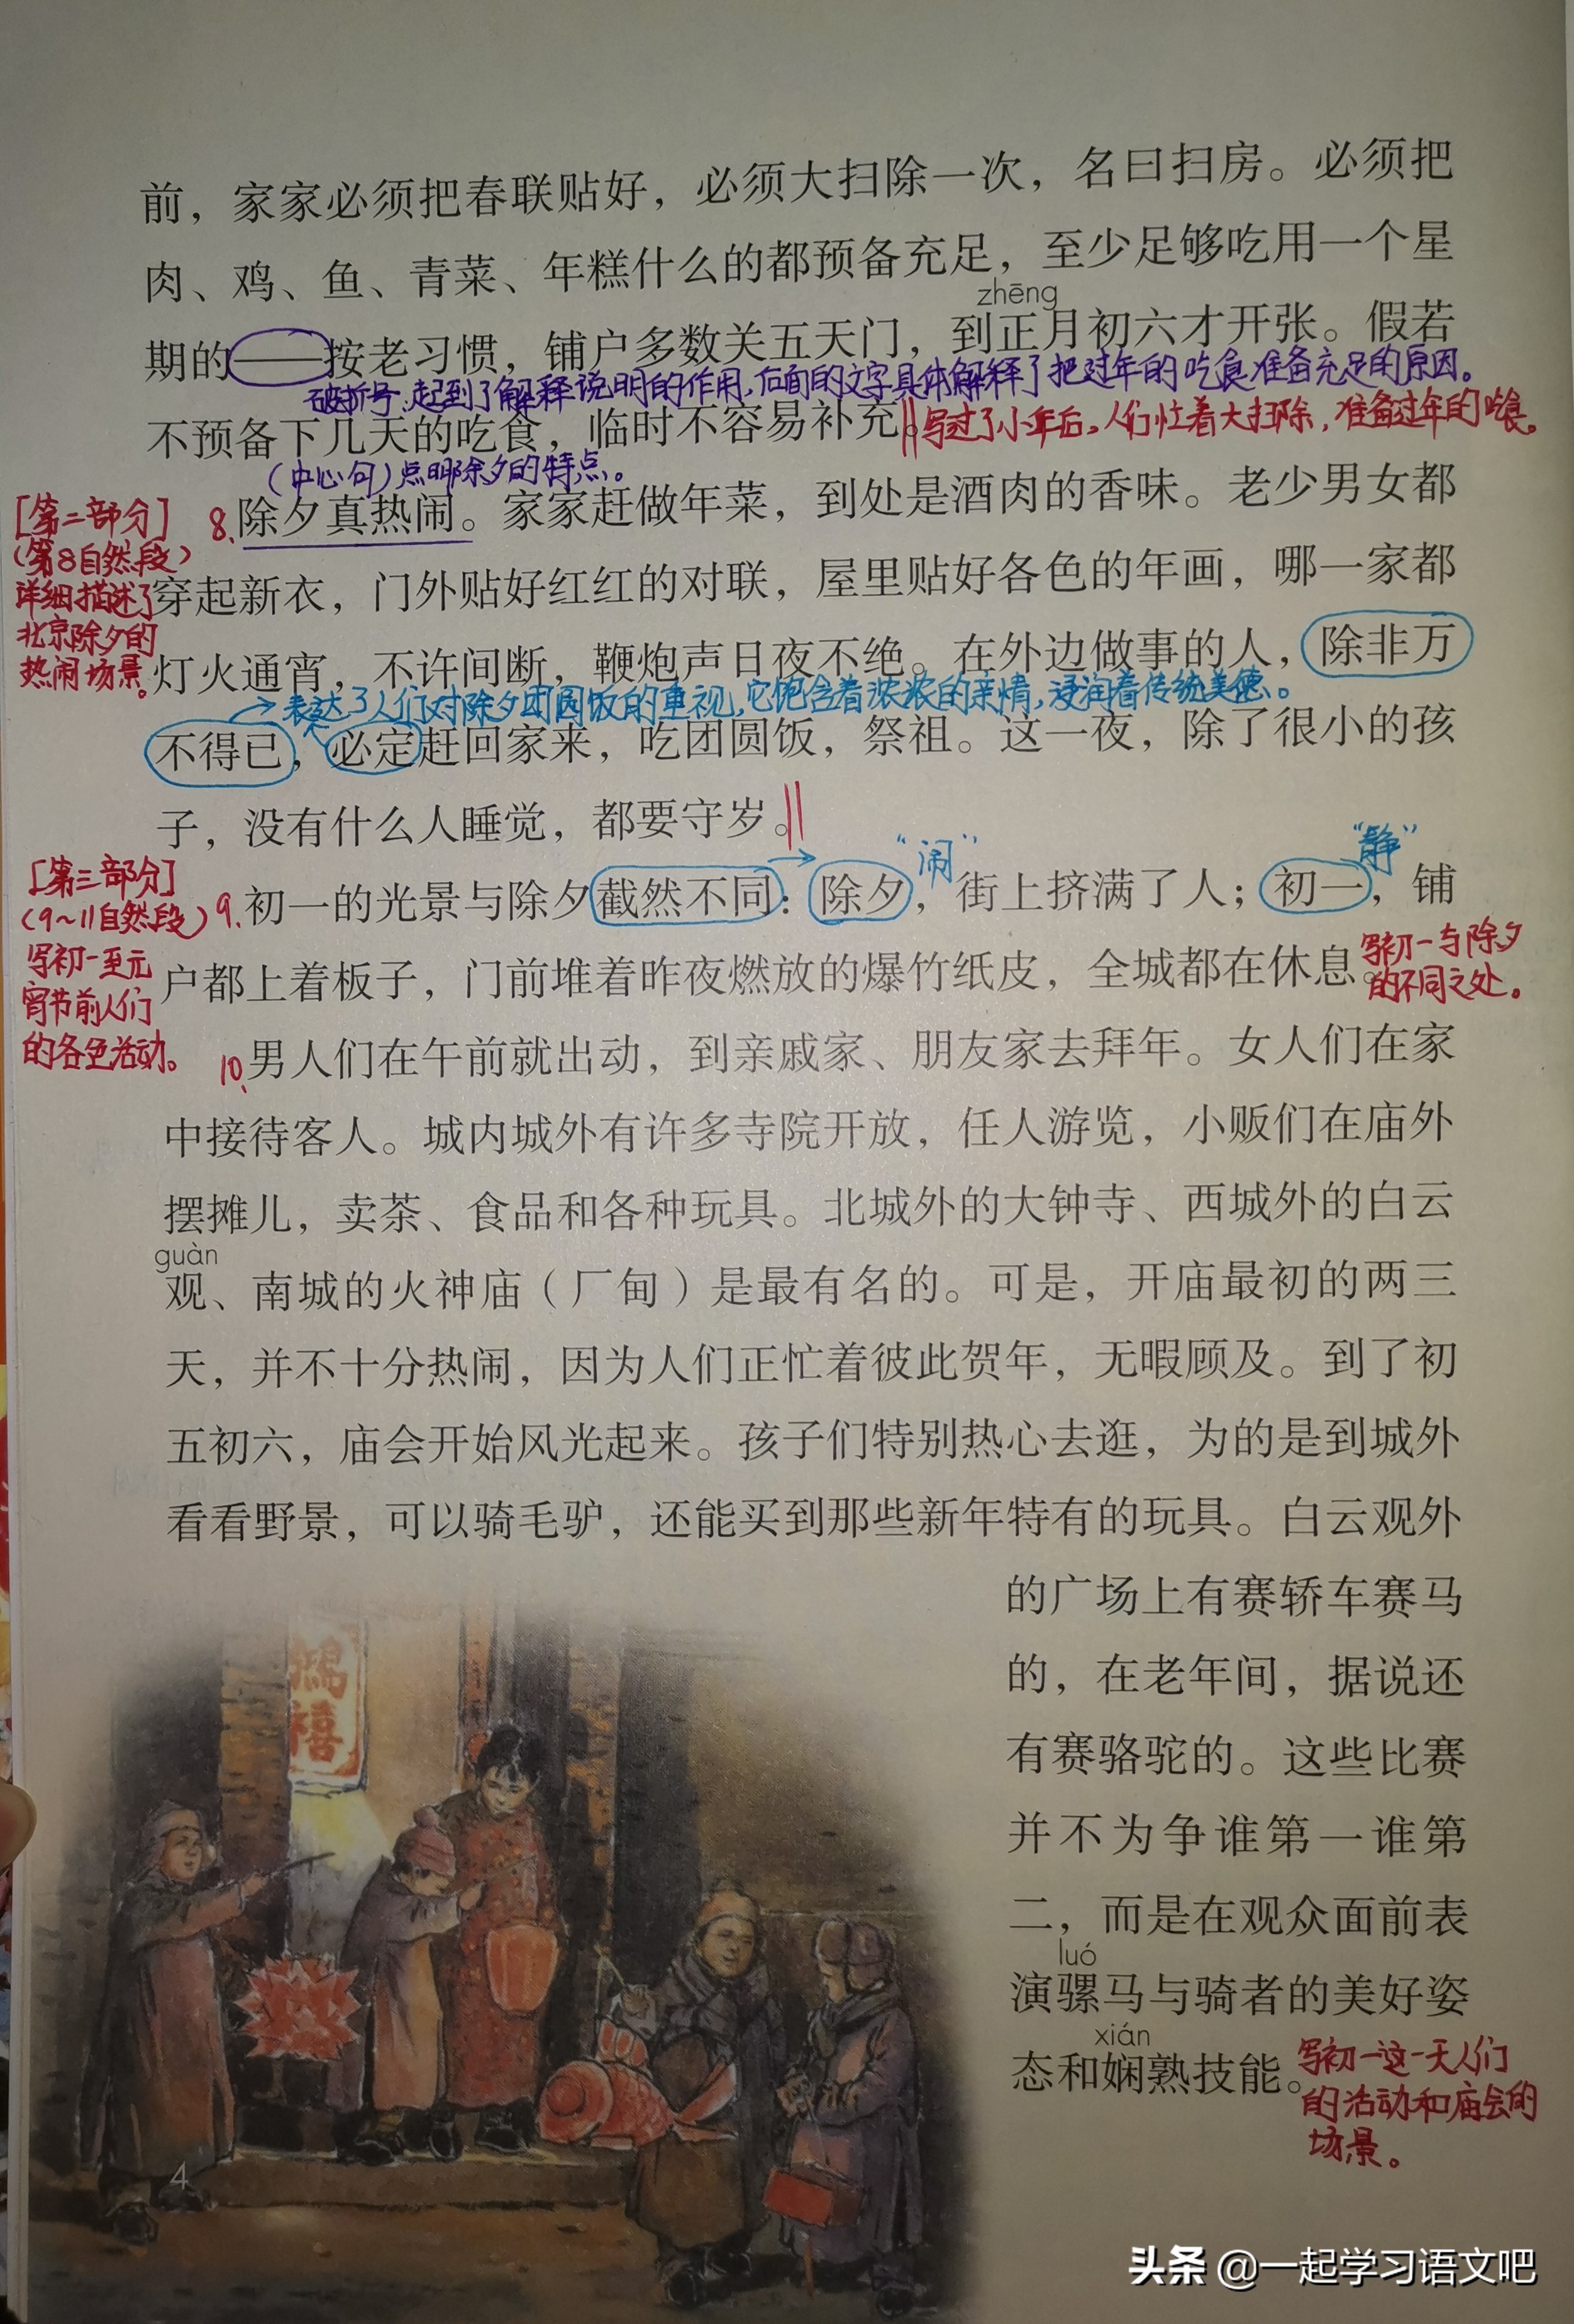 前，家家必须把春联贴好，必须大扫除一次，名曰扫房。必须把
肉、鸡、鱼、青菜、年糕什么的都预备充足，至少足够吃用一个星
zhēng
期的——按老习惯，铺户多数关五天门，到正月初六才开张。假若
破折号，起到了解释说明的作用，后面的文字具体解释了把过年的吃食准备充足的原因。
不预备下几天的吃食，临时不容易补充。
写过了小年后，人们忙着大扫除，准备过年的吃食。
（中心句）点明除夕的特点。
[第二部分]
（第8自然段）
详细描述了
北京除夕的
热闹场景。
8、除夕真热闹。家家赶做年菜，到处是酒肉的香味。老少男女都
穿起新衣，门外贴好红红的对联，屋里贴好各色的年画，哪一家都
灯火通宵，不许间断，鞭炮声日夜不绝。在外边做事的人，除非万
→表达了人们对除夕团圆饭的重视，它饱含着浓浓的亲情，浸润着传统美德。
不得已，必定赶回家来，吃团圆饭，祭祖。这一夜，除了很小的孩
子，没有什么人睡觉，都要守岁。
“闹”
“静”
[第三部分]
（9~11自然段）
写初一至元
宵节前人们
的各色活动。
9、初一的光景与除夕截然不同：除夕，街上挤满了人；初一，铺
户都上着板子，门前堆着昨夜燃放的爆竹纸皮，全城都在休息。
写初一与除夕
的不同之处。
10、男人们在午前就出动，到亲戚家、朋友家去拜年。女人们在家
中接待客人。城内城外有许多寺院开放，任人游览，小贩们在庙外
摆摊儿，卖茶、食品和各种玩具。北城外的大钟寺、西城外的白云
guàn
观、南城的火神庙（厂甸）是最有名的。可是，开庙最初的两三
天，并不十分热闹，因为人们正忙着彼此贺年，无暇顾及。到了初
五初六，庙会开始风光起来。孩子们特别热心去逛，为的是到城外
看看野景，可以骑毛驴，还能买到那些新年特有的玩具。白云观外
的广场上有赛轿车赛马
的，在老年间，据说还
有赛骆驼的。这些比赛
并不为争谁第一谁第
二，而是在观众面前表
luó
演骡马与骑者的美好姿
xián
态和娴熟技能。
写初一这一天人们
的活动和庙会的
场景。
鴻
禧
4
头条 @一起学习语文吧